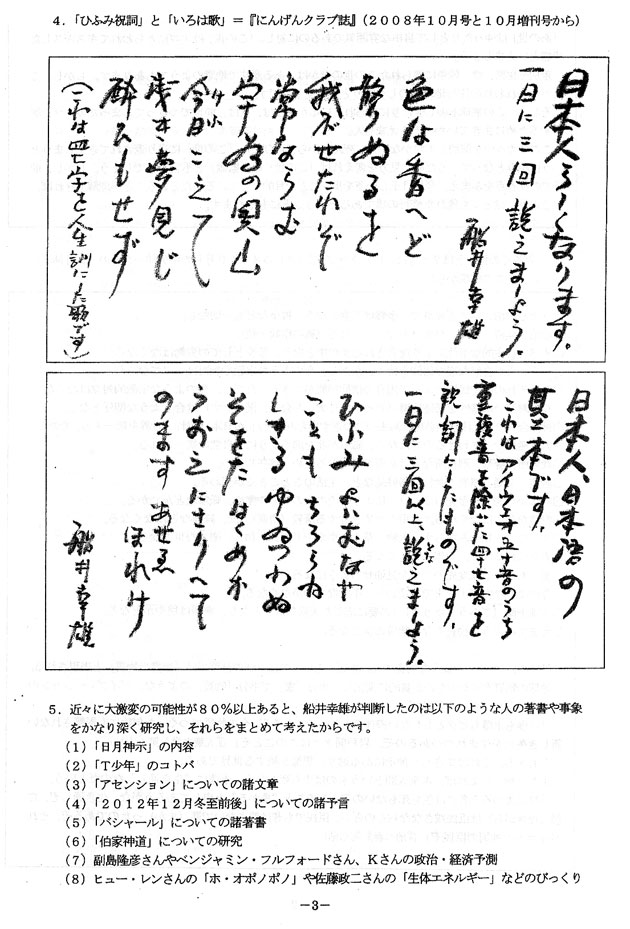 4．「ひふみ祝詞」と「いろは歌」＝『にんげんクラブ誌』(2008年10月号と10月増刊号から)
日本人らしくなります。
一日に三回、説えましょう。
船井幸雄
色は香へど
散りぬるを
我が世たれぞ
常ならむ
宇為の奥山
今日こえて
けふ
浅き夢見じ
酔ひもせず
(これは四七字を人生訓にした歌です)
日本人、日本語の
基本です。
これはアイウエオ五十音のうち
重複音を除いた四十七音を
祝詞にしたものです。
一日に三回以上、説えましょう。
とな
ひふみよいむなや
こともちろらね
しきるゆゐつわぬ
そをたはくめか
うおえにさりへて
のますあせゑ
ほれけ
船井幸雄
5．近々に大激変の可能性が80％以上あると、船井幸雄が判断したのは以下のような人の著書や事象
をかなり深く研究し、それらをまとめて考えたからです。
(1)「日月神示」の内容
(2)「T少年」のコトバ
(3)「アセンション」についての諸文章
(4)「2012年12月冬至前後」についての諸予言
(5)「バシャール」についての諸著書
(6)「伯家神道」についての研究
(7) 副島隆彦さんやベンジャミン・フルフォードさん、Kさんの政治・経済予測
(8) ヒュー・レンさんの「ホ・オポノポノ」や佐藤政二さんの「生体エネルギー」などのびっくり
－3－